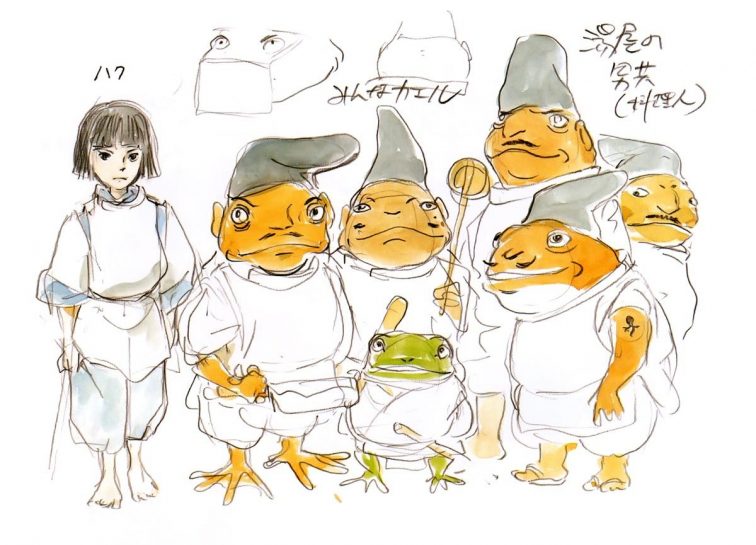 ハク
みんなカエル
湯屋の
男共
(料理人)